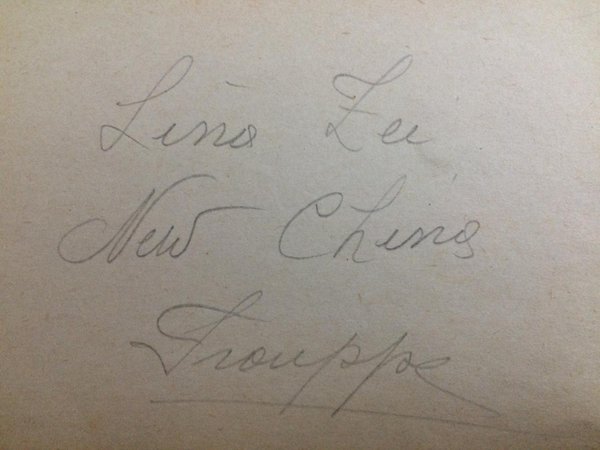 Lina Zee
New China
Trouppe